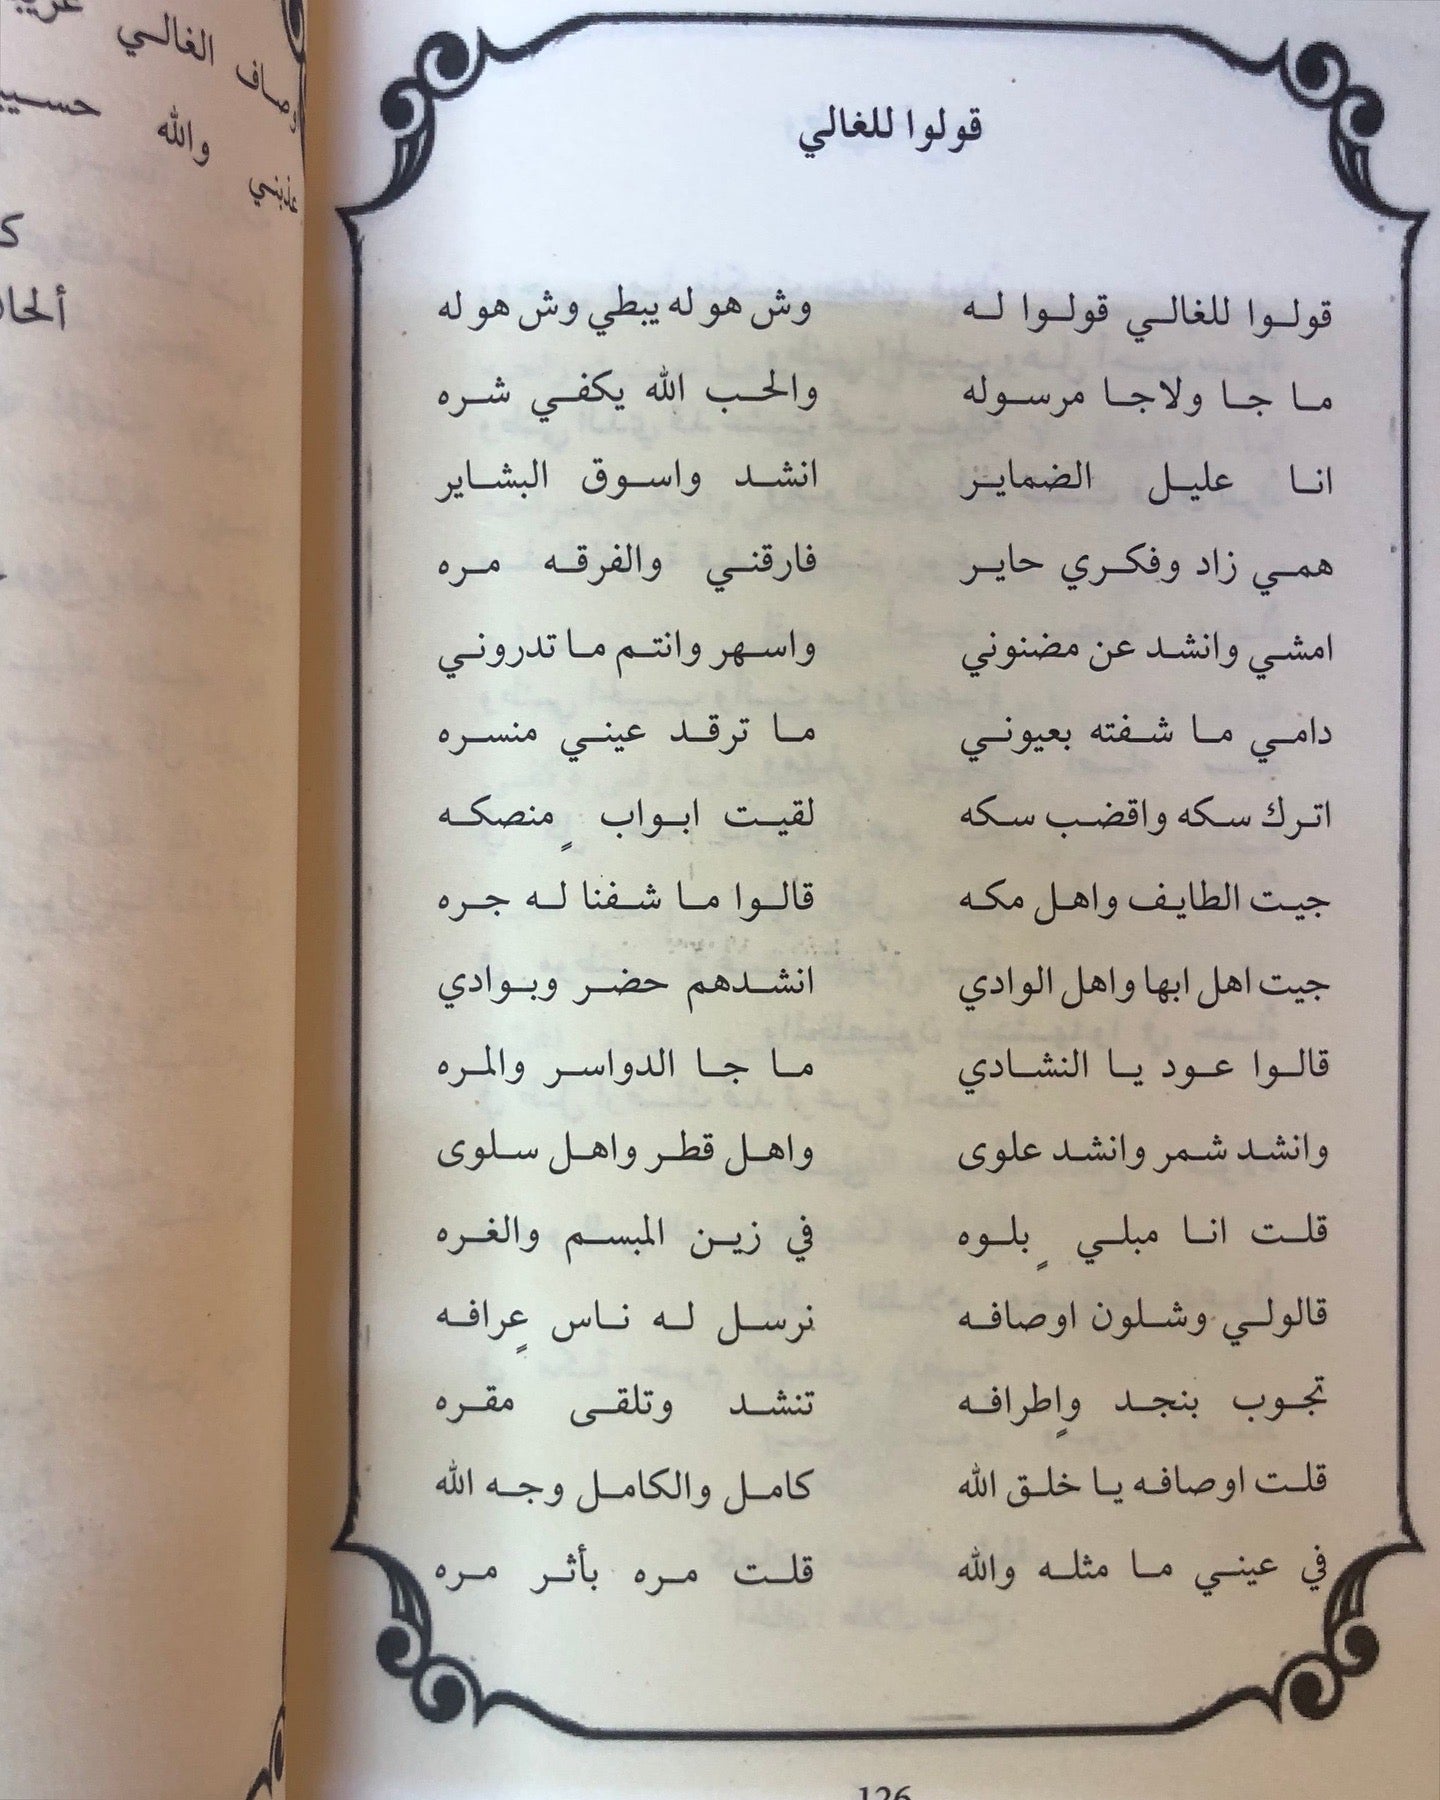 قولوا للغالي
قولوا للغالي قولوا له وش هو له يبطي وش هو له
ما جا ولاجا مرسوله والحب الله يكفي شره
انا عليل الضماير انشد واسوق البشاير
همي زاد وفكري حاير فارقني والفرقه مره
امشي وانشد عن مضنوني واسهر وانتم ما تدروني
دامي ما شفته بعيوني ما ترقد عيني منسره
اترك سكه واقضب سكه لقيت ابواب ٍ منصكه
جيت الطايف واهل مكه قالوا ما شفنا له جره
جيت اهل ابها واهل الوادي انشدهم حضر وبوادي
قالوا عود يا النشادي ما جا الدواسر والمره
وانشد شمر وانشد علوى واهل قطر واهل سلوى
قلت انا مبلي ٍ بلوه في زين المبسم والغره
قالولي وشلون اوصافه نرسل له ناس عٍرافه
تجوب بنجد واٍطرافه تنشد وتلقى مقره
قلت اوصافه يا خلق الله كامل والكامل وجه الله
في عيني ما مثله والله قلت مره بأثر مره
126
الغالي
والله
عذبني